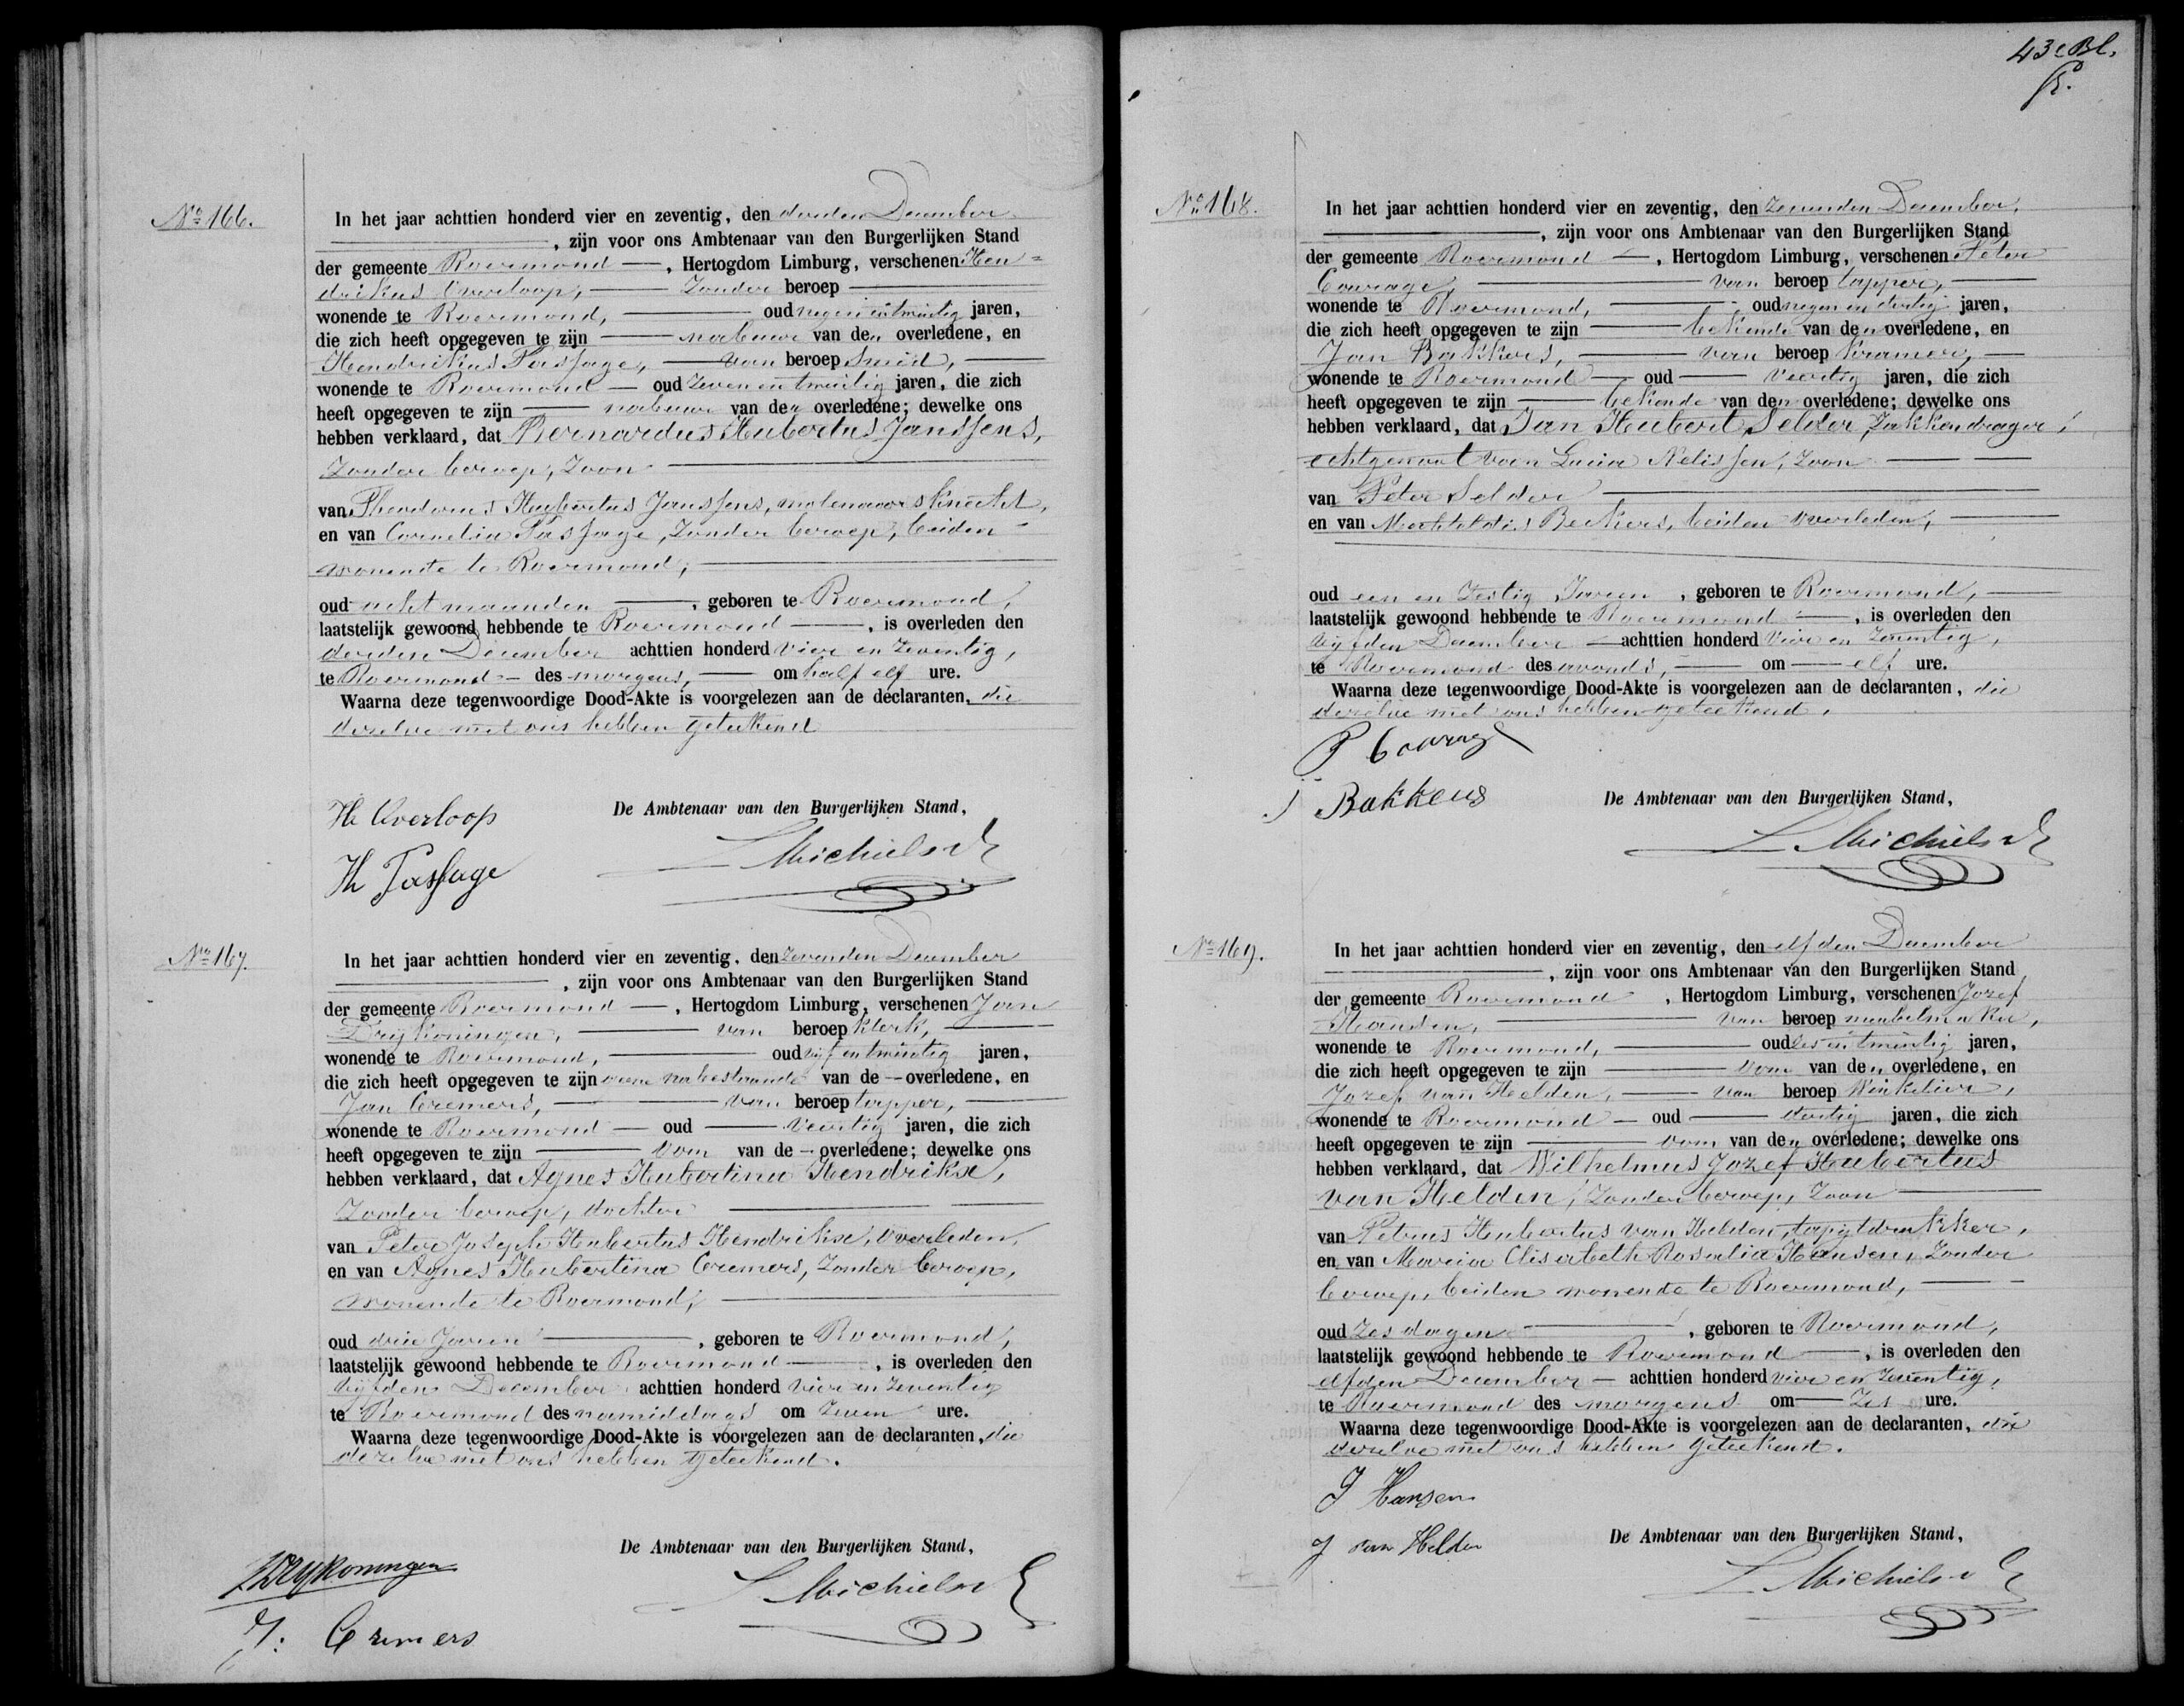 No 166.
In het jaar achttien honderd vier en zeventig, den derden December
, zijn voor ons Ambtenaar van den Burgerlijken Stand
der gemeente Roermond, Hertogdom Limburg, verschenen Hen=
drikus Overloop, zonder beroep
wonende te Roermond, oud negen en twintig jaren,
die zich heeft opgegeven te zijn nabuur van den overledene, en
Hendrikus Passage, van beroep smid,
wonende te Roermond oud zeven en twintig jaren, die zich
heeft opgegeven te zijn nabuur van den overledene; dewelke ons
hebben verklaard, dat Bernardus Hubertus Janssens,
zonder beroep, zoon
van Theodorus Hubertus Janssens, molenaarsknecht,
en van Cornelia Passage, zonder beroep, beiden
wonende te Roermond,
oud acht maanden, geboren te Roermond,
laatstelijk gewoond hebbende te Roermond, is overleden den
derden December achttien honderd vier en zeventig,
te Roermond des morgens, om half elf ure.
Waarna deze tegenwoordige Dood-Akte is voorgelezen aan de declaranten, die
dezelve met ons hebben geteekend
H Overloop
De Ambtenaar van den Burgerlijken Stand,
H Passage
L Michiels
No 167.
In het jaar achttien honderd vier en zeventig, den zevenden December
, zijn voor ons Ambtenaar van den Burgerlijken Stand
der gemeente Roermond, Hertogdom Limburg, verschenen Jan
Drijkoningen, van beroep klerk,
wonende te Roermond, oud vijf en twintig jaren,
die zich heeft opgegeven te zijn eene nabestaande van de overledene, en
Jan Cremers, van beroep tapper,
wonende te Roermond oud veertig jaren, die zich
heeft opgegeven te zijn oom van de overledene; dewelke ons
hebben verklaard, dat Agnes Hubertina Hendrikse,
zonder beroep, dochter
van Peter Joseph Hubertus Hendrikse, overleden,
en van Agnes Hubertina Cremers, zonder beroep,
wonende te Roermond,
oud drie Jaren, geboren te Roermond,
laatstelijk gewoond hebbende te Roermond, is overleden den
vijfden December achttien honderd vier en zeventig
te Roermond des namiddags om zeven ure.
Waarna deze tegenwoordige Dood-Akte is voorgelezen aan de declaranten, die
dezelve met ons hebben geteekend.
De Ambtenaar van den Burgerlijken Stand,
J Drykoningen
L Michiels
J: Cremers
43e Bl.
No 168.
In het jaar achttien honderd vier en zeventig, den zevenden December,
, zijn voor ons Ambtenaar van den Burgerlijken Stand
der gemeente Roermond, Hertogdom Limburg, verschenen Peter
Courage, van beroep tapper,
wonende te Roermond, oud negen en dertig jaren,
die zich heeft opgegeven te zijn bekende van den overledene, en
Jan Bakkers, van beroep kramer,
wonende te Roermond oud veertig jaren, die zich
heeft opgegeven te zijn bekende van den overledene; dewelke ons
hebben verklaard, dat Jan Hubert Selder, zakkendrager,
echtgenoot van Lucia Nelissen, zoon
van Peter Selder
en van Mechtildis Beckers, beiden overleden,
oud een en zestig Jaren, geboren te Roermond,
laatstelijk gewoond hebbende te Roermond, is overleden den
vijfden December achttien honderd vier en zeventig,
te Roermond des avonds, om elf ure.
Waarna deze tegenwoordige Dood-Akte is voorgelezen aan de declaranten, die
dezelve met ons hebben geteekend.
P Courage
J Bakkers
De Ambtenaar van den Burgerlijken Stand,
L Michiels
No 169.
In het jaar achttien honderd vier en zeventig, den elfden December
, zijn voor ons Ambtenaar van den Burgerlijken Stand
der gemeente Roermond, Hertogdom Limburg, verschenen Jozef
Hansen, van beroep meubelmaker,
wonende te Roermond, oud zes en twintig jaren,
die zich heeft opgegeven te zijn oom van den overledene, en
Jozef van Helden, van beroep Winkelier,
wonende te Roermond oud dertig jaren, die zich
heeft opgegeven te zijn oom van den overledene; dewelke ons
hebben verklaard, dat Wilhelmus Jozef Hubertus
van Helden, zonder beroep, zoon
van Petrus Hubertus van Helden, tapijtdrukker,
en van Maria Elisabeth Rosalia Hansen, zonder
beroep, beiden wonende te Roermond,
oud zes dagen, geboren te Roermond,
laatstelijk gewoond hebbende te Roermond, is overleden den
elfden December achttien honderd vier en zeventig,
te Roermond des morgens om zes ure.
Waarna deze tegenwoordige Dood-Akte is voorgelezen aan de declaranten, die
dezelve met ons hebben geteekend.
J Hansen
J van Helden
De Ambtenaar van den Burgerlijken Stand,
L Michiels